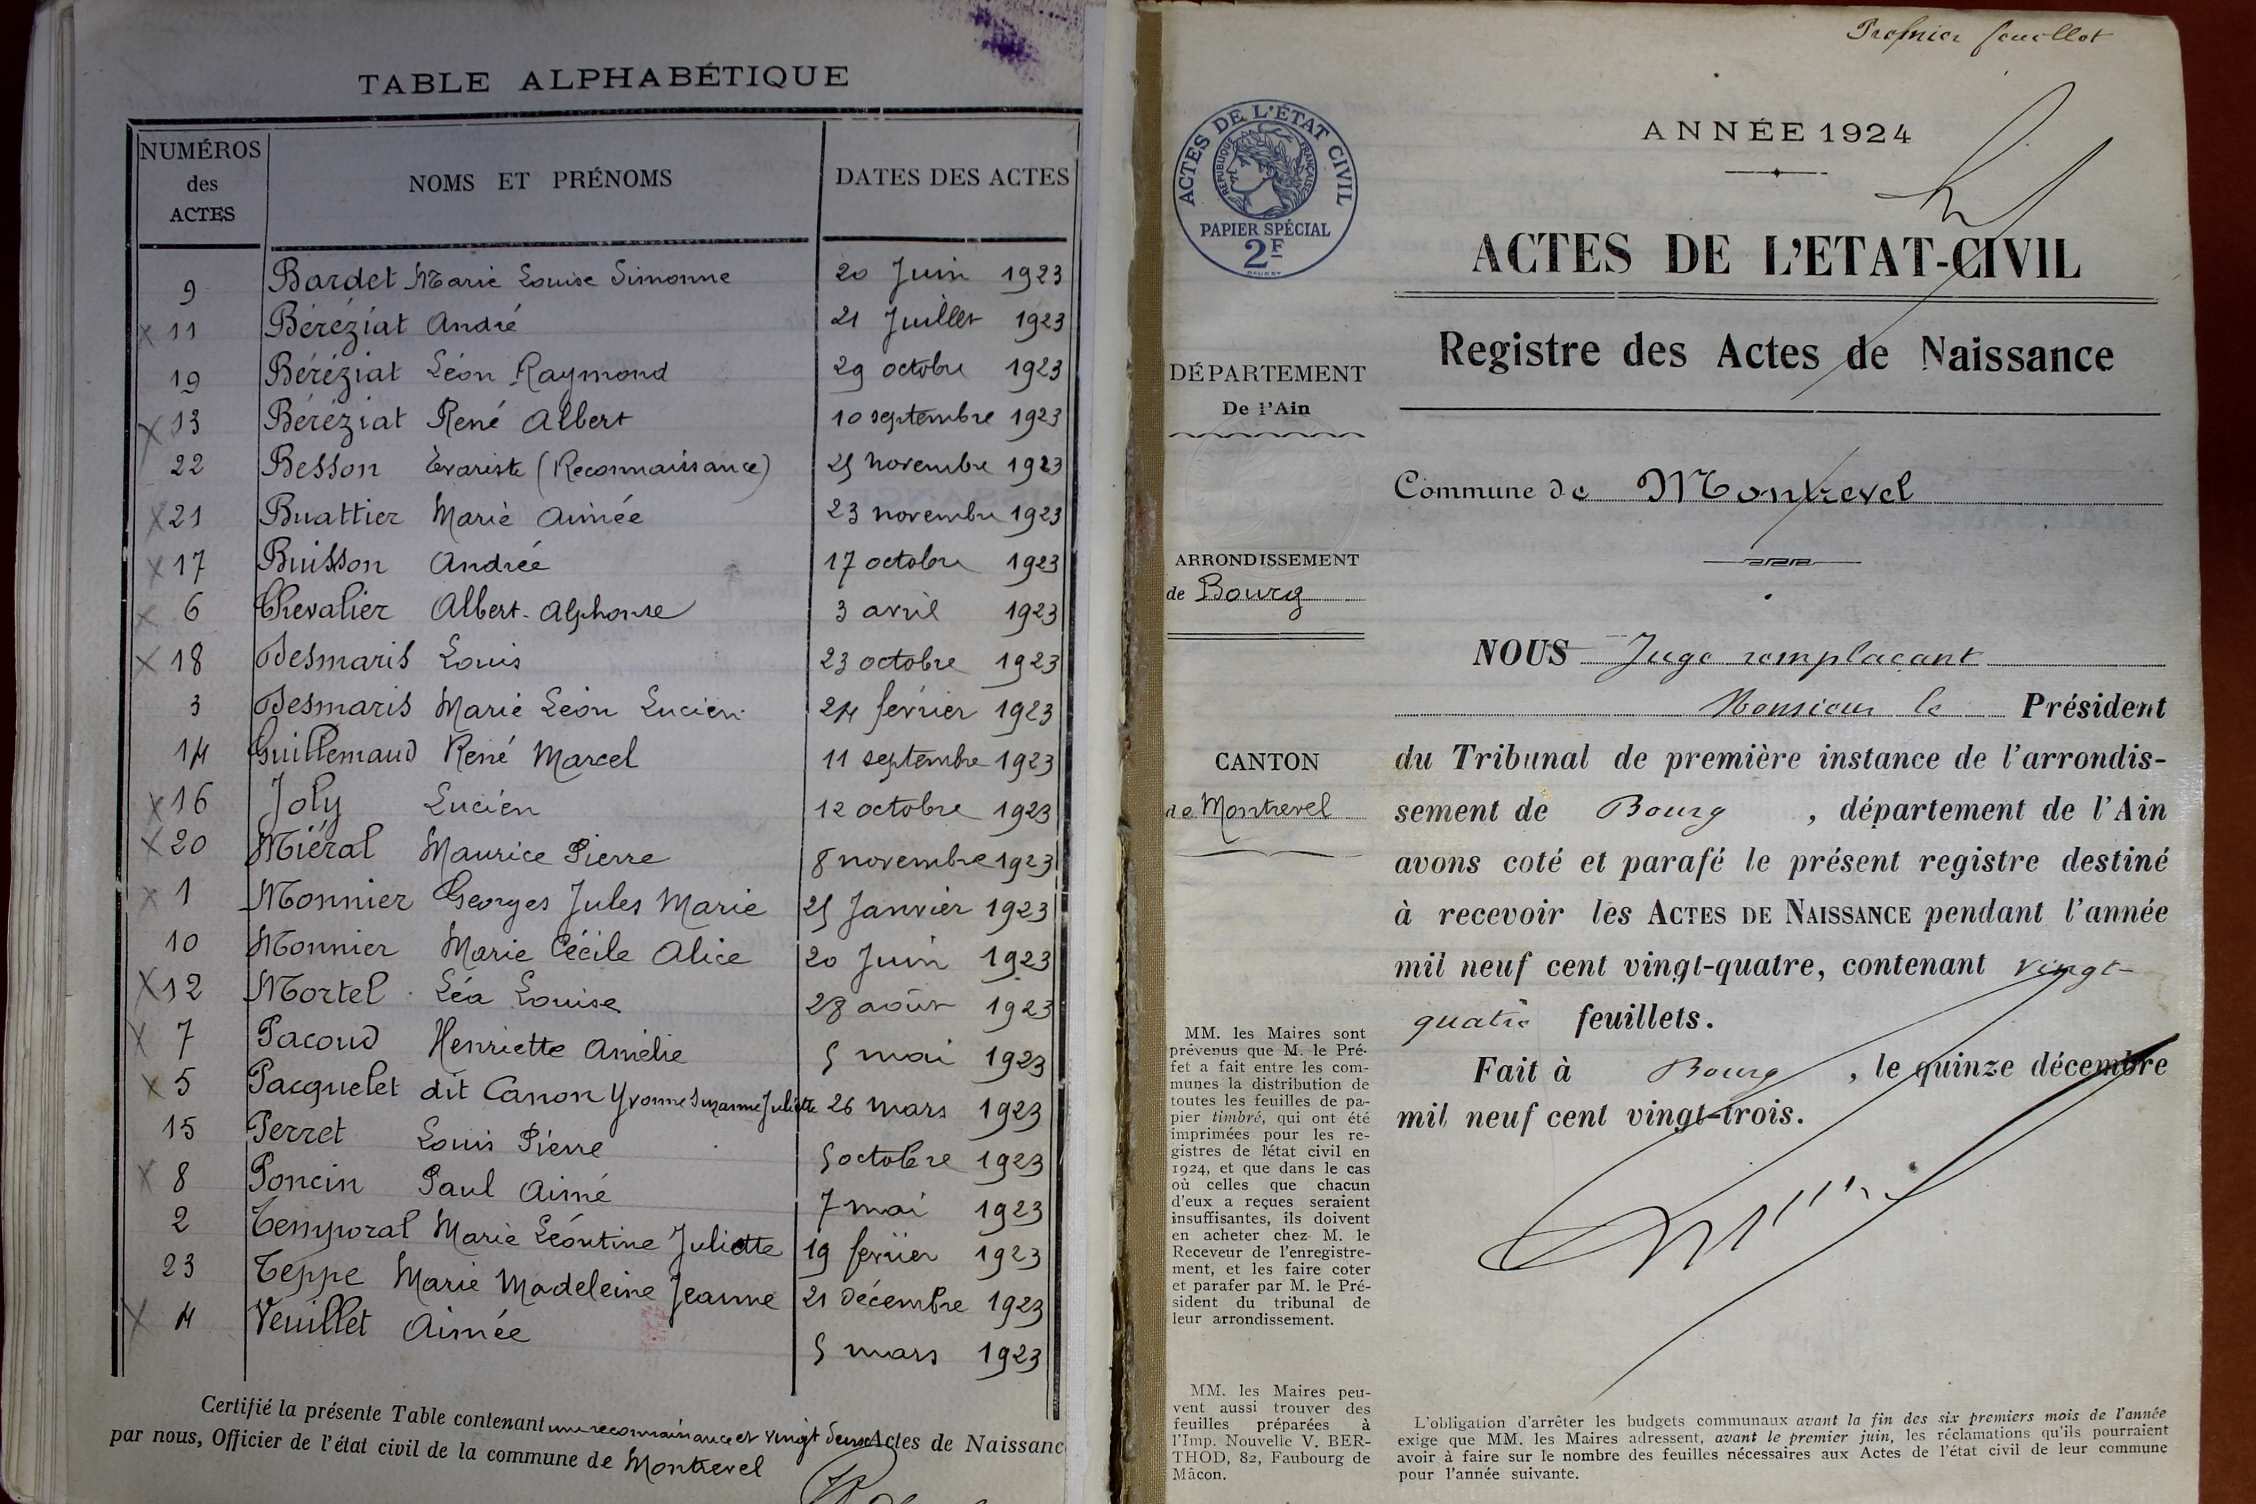 TABLE ALPHABÉTIQUE
NUMÉROS des ACTES NOMS ET PRÉNOMS DATES DES ACTES
9 Bardet Marie Louise Simonne 20 Juin 1923
x 11 Béréziat André 21 Juillet 1923
19 Béréziat Léon Raymond 29 octobre 1923
x 13 Béréziat René Albert 10 septembre 1923
22 Besson Evariste (Reconnaissance) 25 novembre 1923
x 21 Buattier Marie Aimée 23 novembre 1923
x 17 Buisson Andrée 17 octobre 1923
x 6 Chevalier Albert-Alphonse 3 avril 1923
x 18 Desmaris Louis 23 octobre 1923
3 Desmaris Marie Léon Lucien 24 février 1923
14 Guillemaud René Marcel 11 septembre 1923
x 16 Joly Lucien 12 octobre 1923
x 20 Miéral Maurice Pierre 8 novembre 1923
x 1 Monnier Georges Jules Marie 25 Janvier 1923
10 Monnier Marie Cécile Alice 20 Juin 1923
x 12 Mortel Léa Louise 28 août 1923
x 7 Pacoud Henriette Amélie 5 mai 1923
x 5 Pacquelet dit Canon Yvonne Suzanne Juliette 26 mars 1923
15 Perret Louis Pierre 5 octobre 1923
x 8 Poncin Paul Aimé 7 mai 1923
2 Temporal Marie Léontine Juliette 19 février 1923
23 Teppe Marie Madeleine Jeanne 21 décembre 1923
x 4 Veuillet Aimée 5 mars 1923
Certifié la présente Table contenant une reconnaissance et vingt deux Actes de Naissanc
par nous, Officier de l'état civil de la commune de Montrevel
Premier feuillet
ACTES DE L'ÉTAT CIVIL
RÉPUBLIQUE FRANÇAISE
PAPIER SPÉCIAL
2F
DÉPARTEMENT
De l'Ain
ARRONDISSEMENT
de Bourg
CANTON
de Montrevel
MM. les Maires sont
prévenus que M. le Pré-
fet a fait entre les com-
munes la distribution de
toutes les feuilles de pa-
pier timbré, qui ont été
imprimées pour les re-
gistres de l'état civil en
1924, et que dans le cas
où celles que chacun
d'eux a reçues seraient
insuffisantes, ils doivent
en acheter chez M. le
Receveur de l'enregistre-
ment, et les faire coter
et parafer par M. le Pré-
sident du tribunal de
leur arrondissement.
MM. les Maires peu-
vent aussi trouver des
feuilles préparées à
l'Imp. Nouvelle V. BER-
THOD, 82, Faubourg de
Mâcon.
ANNÉE 1924
ACTES DE L'ETAT-CIVIL
Registre des Actes de Naissance
Commune de Montrevel
NOUS Juge remplaçant
Monsieur le Président
du Tribunal de première instance de l'arrondis-
sement de Bourg, département de l'Ain
avons coté et parafé le présent registre destiné
à recevoir les ACTES DE NAISSANCE pendant l'année
mil neuf cent vingt-quatre, contenant vingt-
quatre feuillets.
Fait à Bourg, le quinze décembre
mil neuf cent vingt-trois.
L'obligation d'arrêter les budgets communaux avant la fin des six premiers mois de l'année
exige que MM. les Maires adressent, avant le premier juin, les réclamations qu'ils pourraient
avoir à faire sur le nombre des feuilles nécessaires aux Actes de l'état civil de leur commune
pour l'année suivante.